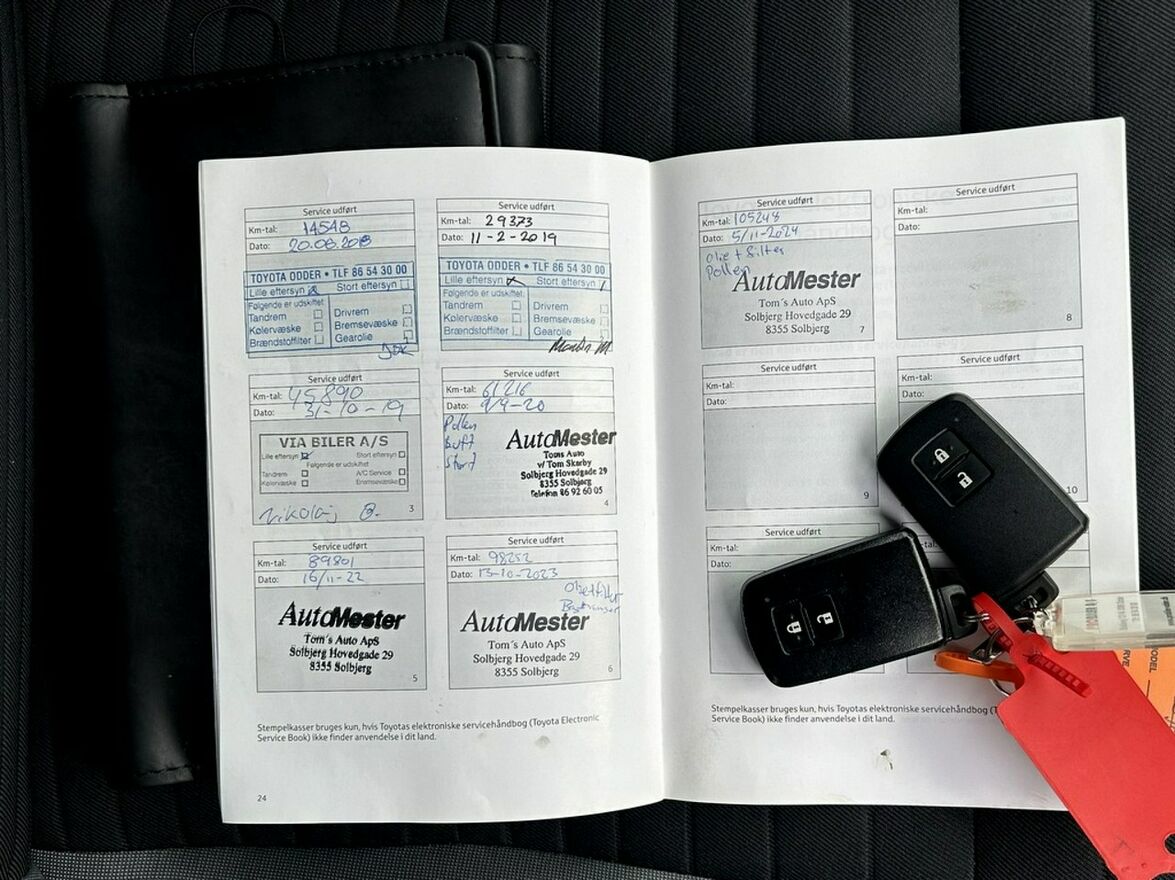 Service udført
Km-tal: 14548
Dato: 20.08.2018
TOYOTA ODDER • TLF 86 54 30 00
Lille eftersyn Stort eftersyn
Følgende er udskiftet:
Tandrem Drivrem
Kølervæske Bremsevæske
Brændstoffilter Gearolie
Service udført
Km-tal: 29373
Dato: 11-2-2019
TOYOTA ODDER • TLF 86 54 30 00
Lille eftersyn Stort eftersyn
Følgende er udskiftet:
Tandrem Drivrem
Kølervæske Bremsevæske
Brændstoffilter Gearolie
Service udført
Km-tal: 45890
Dato: 31-10-19
VIA BILER A/S
Lille eftersyn Stort eftersyn
Følgende er udskiftet
Tandrem A/C Service
Kølervæske Bremsevæske
Nikolaj B.
3
Service udført
Km-tal: 61216
Dato: 9/9-20
Pollen
Luft
Stort
AutoMester
Toms Auto
v/ Tom Skarby
Solbjerg Hovedgade 29
8355 Solbjerg
Telefon 86 92 60 05
4
Service udført
Km-tal: 89801
Dato: 16/11-22
AutoMester
Tom´s Auto ApS
Solbjerg Hovedgade 29
8355 Solbjerg
5
Service udført
Km-tal: 98252
Dato: 13-10-2023
AutoMester
Tom´s Auto ApS
Solbjerg Hovedgade 29
8355 Solbjerg
6
Stempelkasser bruges kun, hvis Toyotas elektroniske servicehåndbog (Toyota Electronic
Service Book) ikke finder anvendelse i dit land.
24
Service udført
Km-tal: 105248
Dato: 5/11-2024
Olie + filter
Pollen
AutoMester
Tom´s Auto ApS
Solbjerg Hovedgade 29
8355 Solbjerg
7
Service udført
Km-tal:
Dato:
8
Service udført
Km-tal:
Dato:
9
Service udført
Km-tal:
Dato:
10
Service udført
Km-tal:
Dato:
Stempelkasser bruges kun, hvis Toyotas elektroniske servicehåndbog (T
Service Book) ikke finder anvendelse i dit land.
MODEL